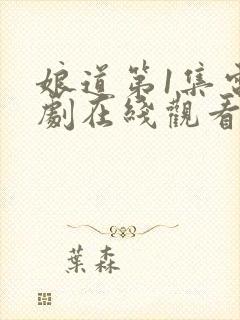 娘道第1集電
劇在綫觀看
葉森